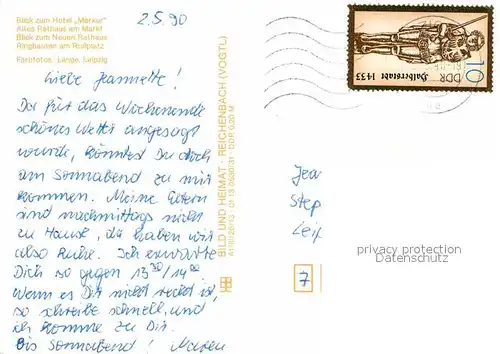 Blick zum Hotel „Merkur"
Altes Rathaus am Markt
Blick zum Neuen Rathaus
Ringbauten am Roßplatz
Farbfotos: Lange, Leipzig
2.5.90
Liebe Jeannette!
Da für das Wochenende
schönes Wetter angesagt
wurde, könntest Du doch
am Sonnabend zu mir
kommen. Meine Eltern
sind nachmittags nicht
zu Hause, da haben wir
also Ruhe. Ich erwarte
Dich so gegen 13 30/14 00
Wenn es Dir nicht recht ist,
so schreibe schnell, und
ich komme zu Dir.
Bis Sonnabend! Maren
BILD UND HEIMAT · REICHENBACH (VOGTL)
DDR 0,20 M
Halberstadt 1433
DDR
10
Jea
Step
Lei
7
privacy protection
Datenschutz